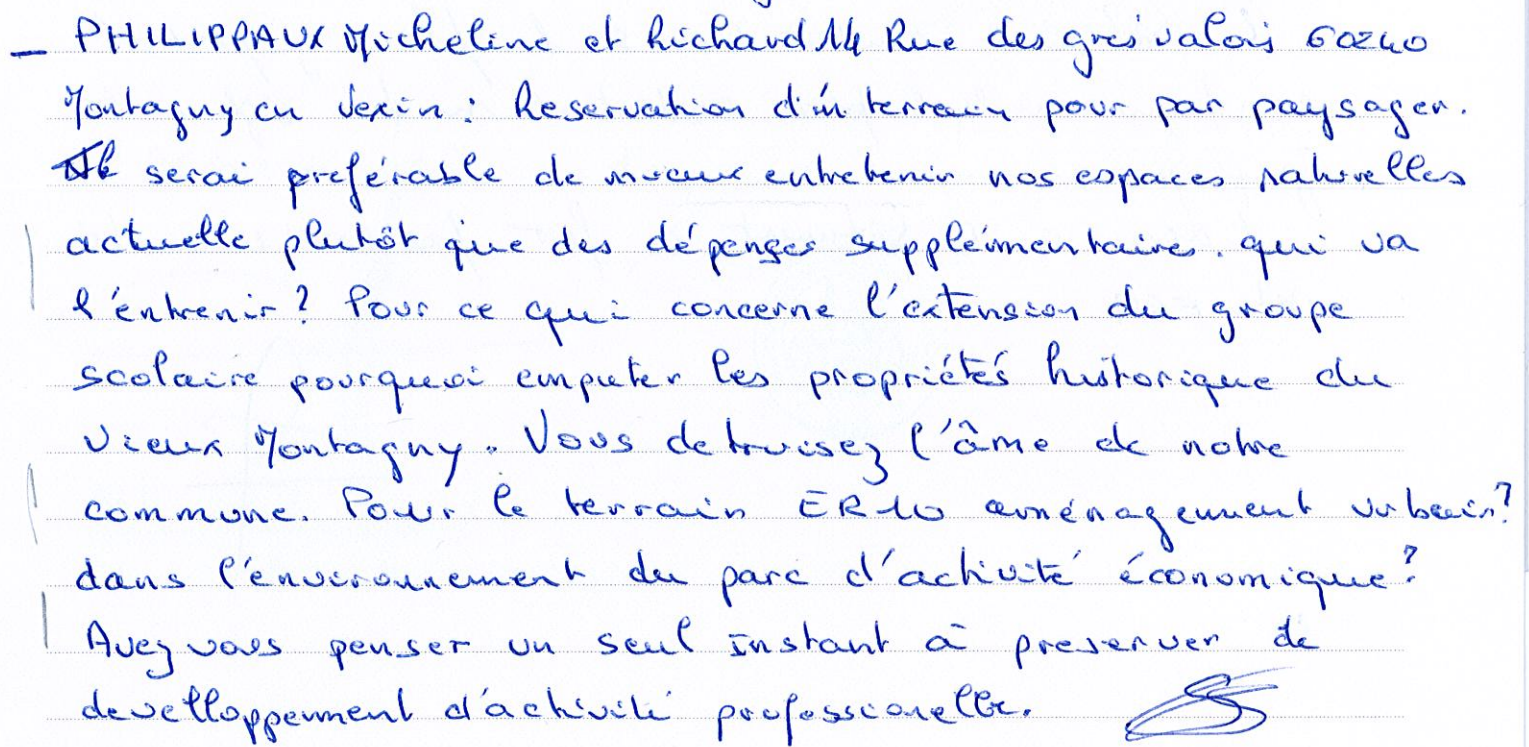 – PHILIPPAUX Micheline et Richard 14 Rue des gres valois 60240
Montagny en Vexin : Reservation d'un terrain pour par paysager.
Il serai préférable de mieux entretenir nos espaces naturelles
actuelle plutôt que des dépenses supplémentaires. qui va
l'entrenir ? Pour ce qui concerne l'extension du groupe
scolaire pourquoi emputer les propriétés historique du
vieux Montagny. Vous detruisez l'âme de notre
commune. Pour le terrain ER10 aménagement urbain ?
dans l'environnement du parc d'activité économique ?
Avez vous penser un seul instant à preserver de
develloppement d'activité professionelle.